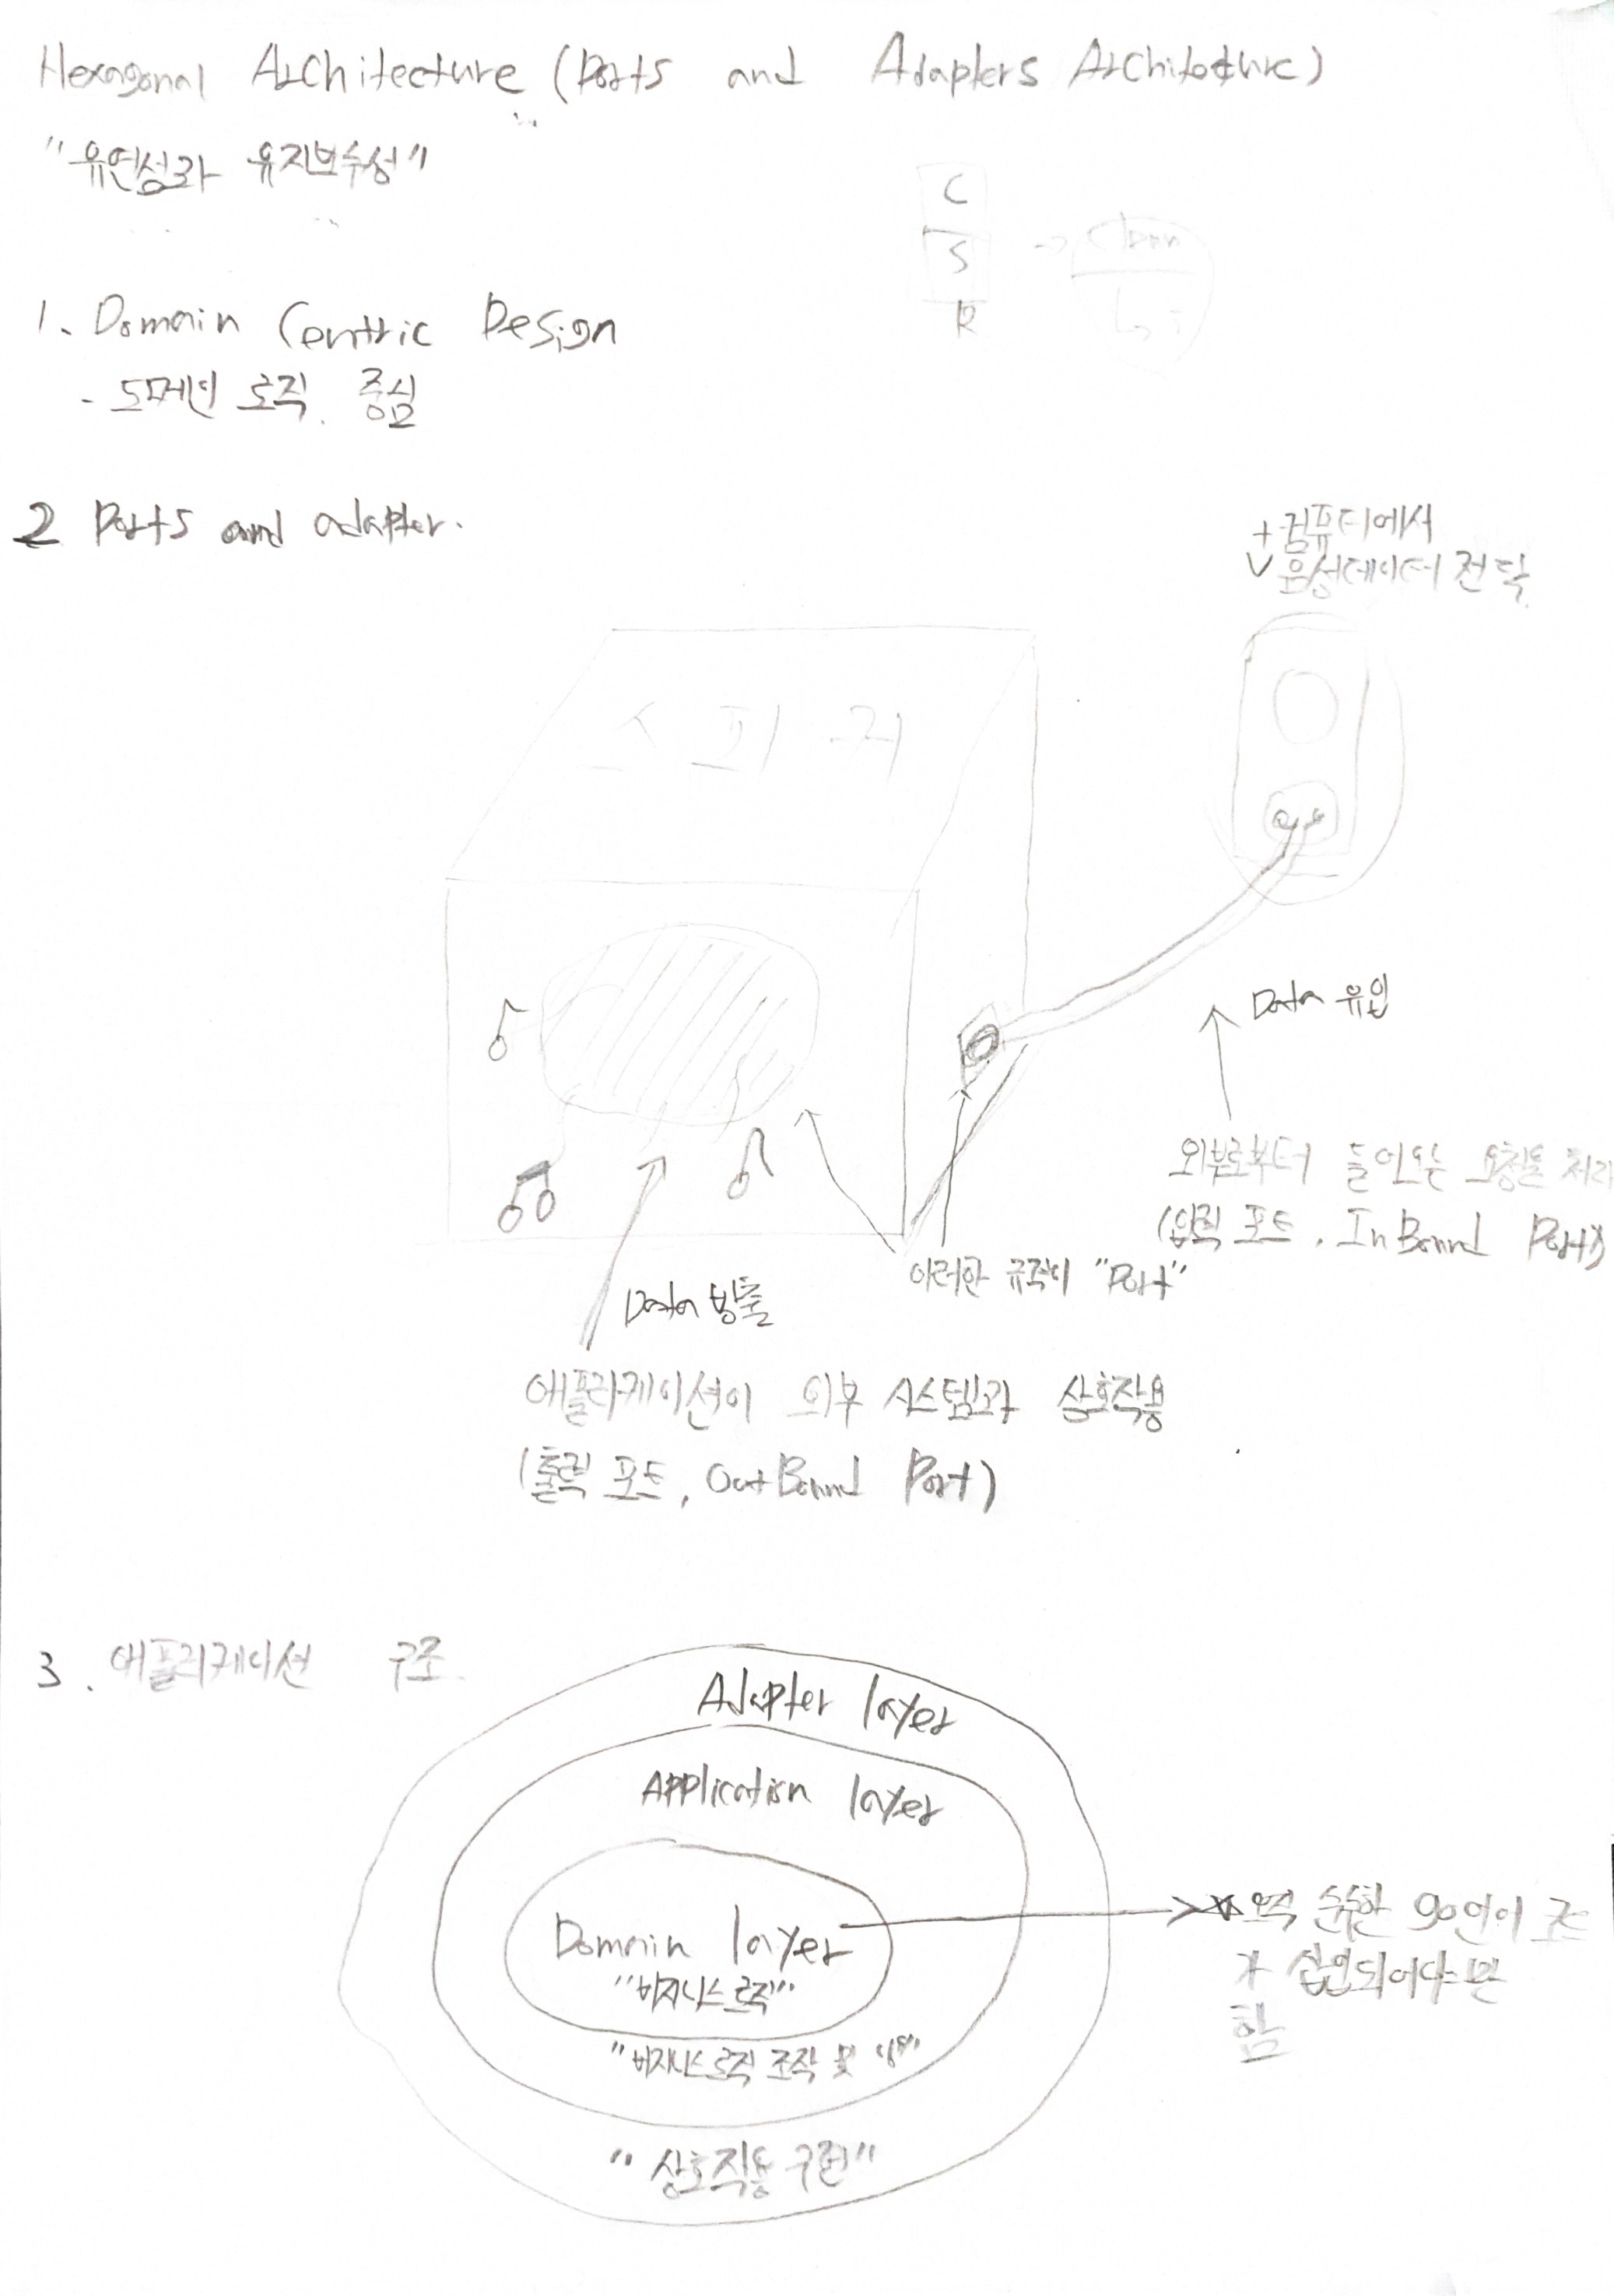 Hexagonal Architecture (Ports and Adapters Architecture)
"유연성과 유지보수성"
C
S
R
1. Domain Centric Design
- 도메인 로직 중심
2 Ports and adapter.
+ 컴퓨터에서
음성데이터 전달
스피커
Data 유입
외부로부터 들어오는 요청을 처리
(입력 포트, InBound Port)
이러한 규격이 "Port"
Data 방출
애플리케이션이 외부 시스템과 상호작용
(출력 포트, OutBound Port)
3. 애플리케이션 구조
Adapter layer
Application layer
Domain layer
"비지니스로직"
"비지니스로직 조작 및
"상호작용 구현"
오직 순수한 go언어 코드
가 삽입되어야만
함